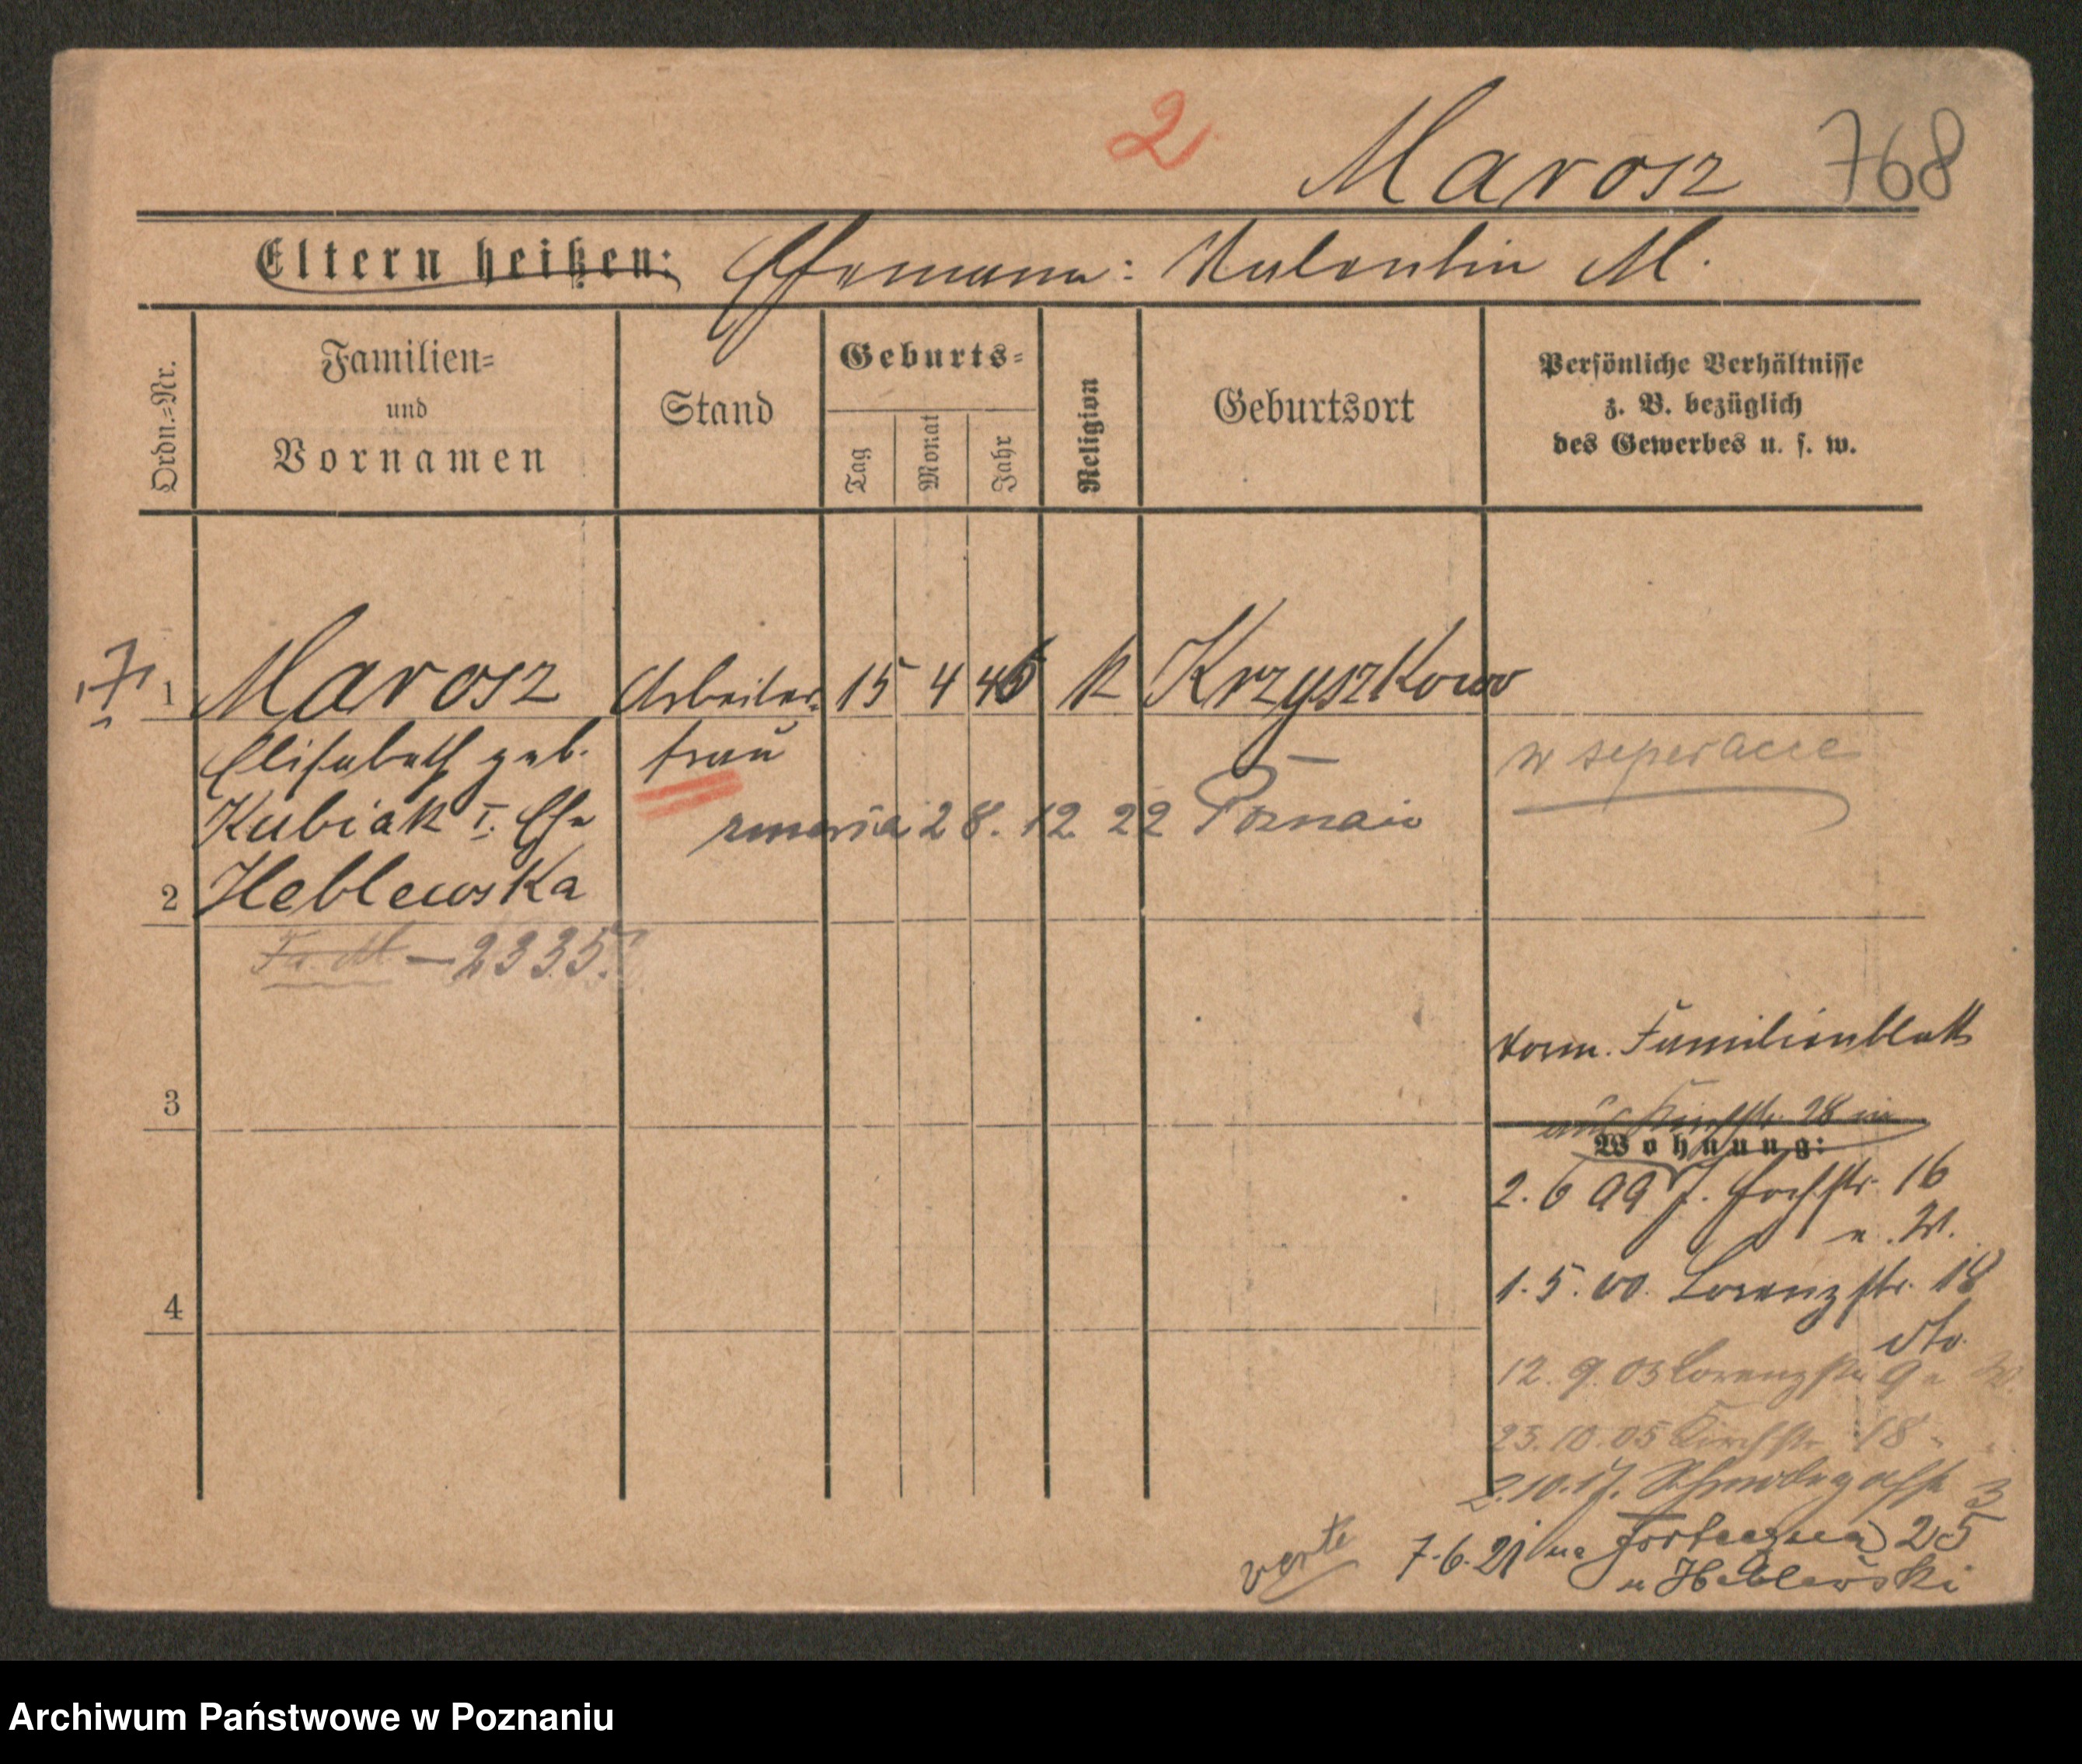 2 Marosz 768
Eltern heißen: Ehemann: Valentin M.
Ordn.=Nr.
Familien=
und
Vornamen
Stand
Geburts=
Tag
Monat
Jahr
Religion
Geburtsort
Persönliche Verhältnisse
z. B. bezüglich
des Gewerbes u. s. w.
1 Marosz Arbeiter 15 4 46 K Krzyszkowo
Elisabeth geb. frau w seperacie
Kubiak I. Ehe zmarła 28. 12 22 Poznań
2 Heblewska
Fa. Bl — 2335
vorm. Familienblatt
3
28
Wohnung:
2. 6 99 J. 16
u. W.
1. 5. 00. Lorenzstr. 18
4
dto.
12. 9. 03 Lorenzstr 9
25. 10. 05 Kirchstr 18
2. 10. 17. 3
verte 7. 6. 21 na Forteczna 25
u Heblewski
Archiwum Państwowe w Poznaniu